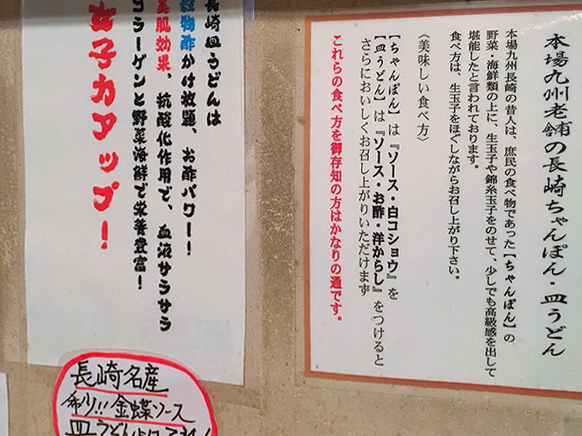 本場九州老舗の長崎ちゃんぽん・皿うどん
本場九州長崎の昔人は、庶民の食べ物であった【ちゃんぽん】の
野菜・海鮮類の上に、生玉子や錦糸玉子をのせて、少しでも高級感を出して
堪能したと言われております。
食べ方は、生玉子をほぐしながらお召し上がり下さい。
〈美味しい食べ方〉
【ちゃんぽん】は『ソース・白コショウ』を
【皿うどん】は『ソース・お酢・洋からし』をつけると
さらにおいしくお召し上がりいただけます
これらの食べ方を御存知の方はかなりの通です。
長崎皿うどんは
穀物酢かけ放題、お酢パワー！
美肌効果、抗酸化作用で、血液サラサラ
コラーゲンと野菜海鮮で栄養豊富！
女子力アップ！
長崎名産
金蝶ソース
皿うどん